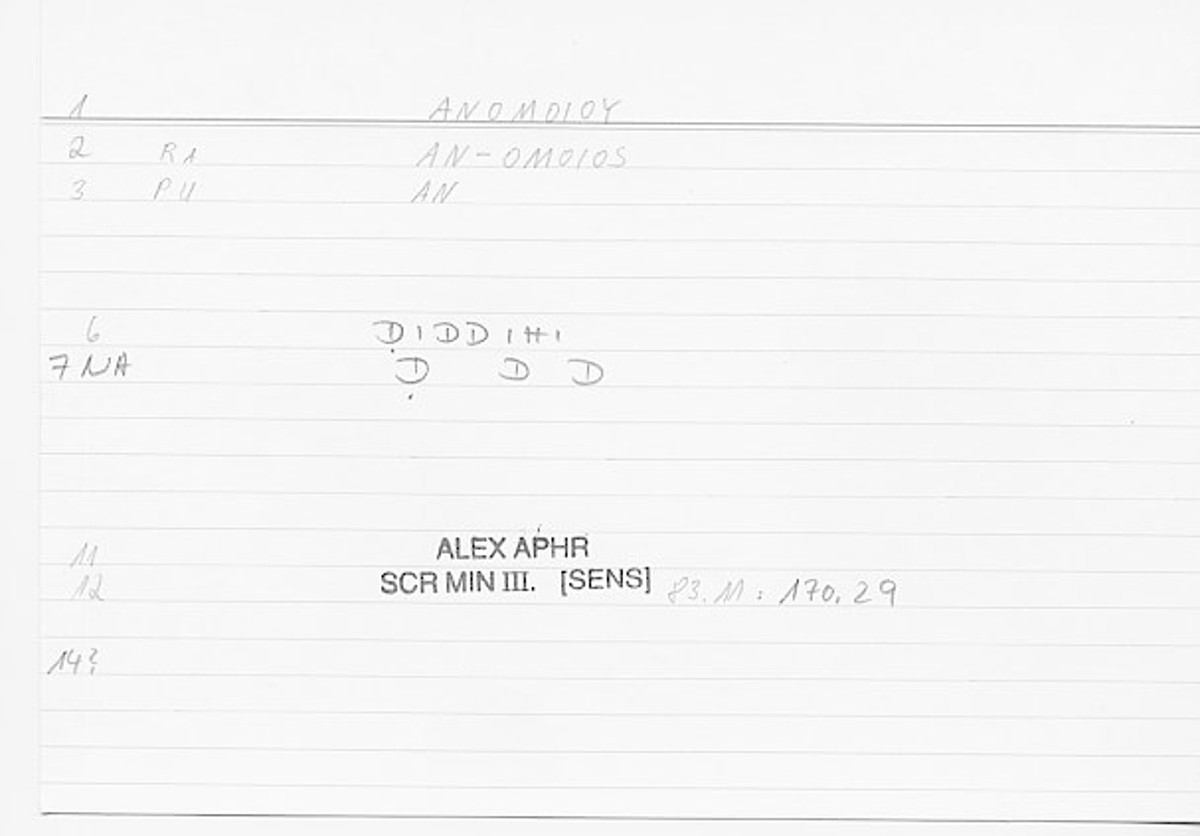 1 ΑΝΟΜΟΙΟΥ
2 R1 AN-OMOIOS
3 PU AN
6 ḌIDDIHI
7 NA Ḍ D D
11 ALEX APHR
12 SCR MIN III. [SENS] 83.11: 170.29
14?